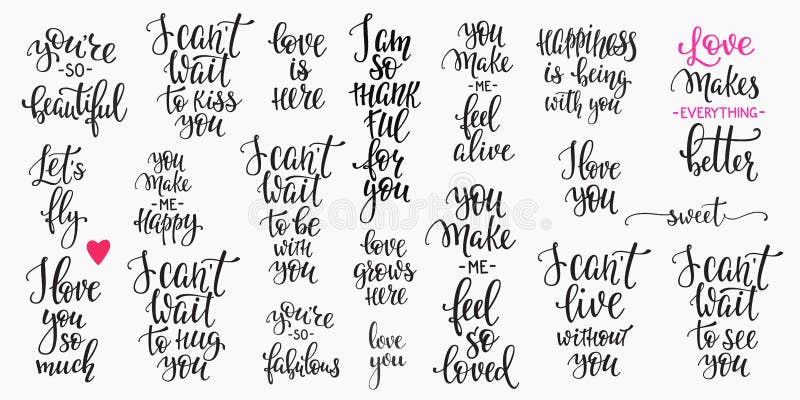 you're
-SO-
beautiful
Let's
fly
I love
you
so
much
I can't
wait
to kiss
you
you
make
-ME-
Happy
I can't
wait
to Hug
you
love
is
Here
I can't
wait
to be
with
you
you're
-SO-
fabulous
I am
so
THANK
FUL
for
you
love
grows
Here
love
you
you
Make
-ME-
feel
alive
you
Make
-ME-
feel
so
loved
Happiness
is being
with you
I love
you
I can't
live
without
you
Love
Makes
-EVERYTHING-
better
sweet
I can't
wait
to see
you
dreamstime